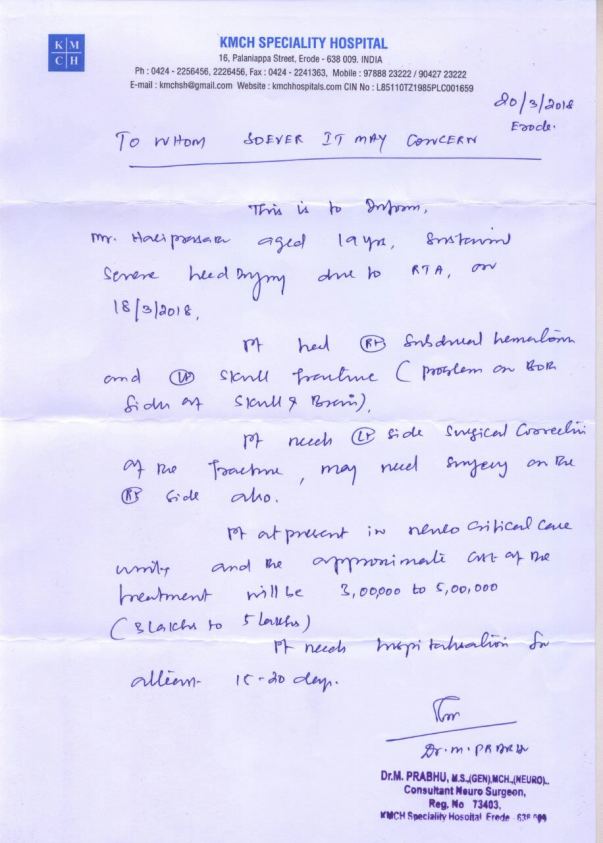 K M
C H
KMCH SPECIALITY HOSPITAL
16, Palaniappa Street, Erode - 638 009. INDIA
Ph : 0424 - 2256456, 2226456, Fax : 0424 - 2241363, Mobile : 97888 23222 / 90427 23222
E-mail : kmchsh@gmail.com Website : kmchhospitals.com CIN No : L85110TZ1985PLC001659
20/3/2018
Erode.
TO WHOM SOEVER IT MAY CONCERN
This is to Inform,
Mr. Hariprasan aged 19 yrs, Sustained
Severe head Injury due to RTA, on
18/3/2018,
Pt had (Rt) Subdural hematoma
and (Lt) Skull fracture ( problem on Both
Sides of Skull & Brain),
Pt needs (Lt) side Surgical Correction
of the fracture, may need surgery on the
(Rt) side also.
Pt at present in neuro critical care
unit, and the approximate cost of the
treatment will be 3,00,000 to 5,00,000
( 3 lakhs to 5 lakhs )
Pt needs hospitalisation for
atleast 15-20 days.
Dr. M. PRABHU
Dr.M. PRABHU, M.S.,(GEN),MCH.,(NEURO).,
Consultant Neuro Surgeon,
Reg. No 73403,
KMCH Speciality Hospital Erode - 638 009